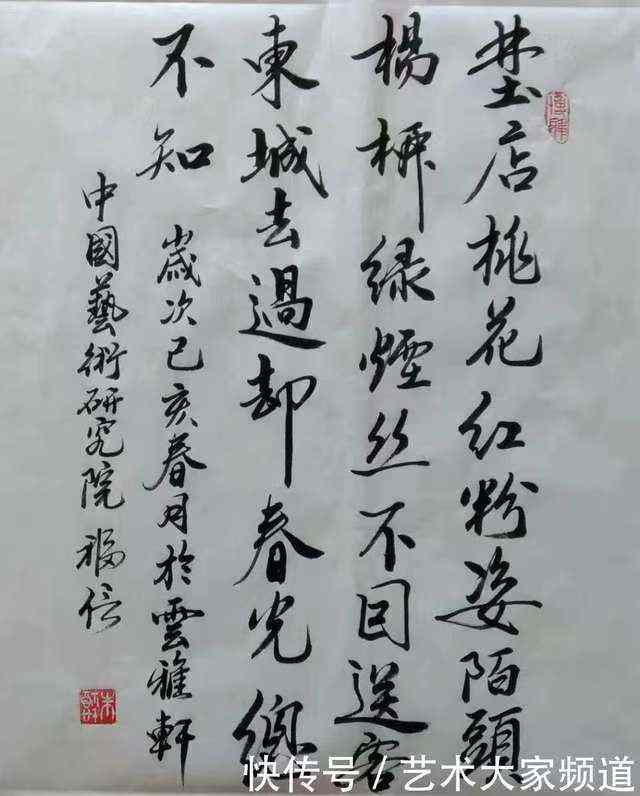 野店桃花红粉姿陌頭
楊柳绿煙丝不因送客
東城去過却春光總
不知 歲次己亥春月於雲雅軒
中國藝術研究院 福信
快传号/艺术大家频道